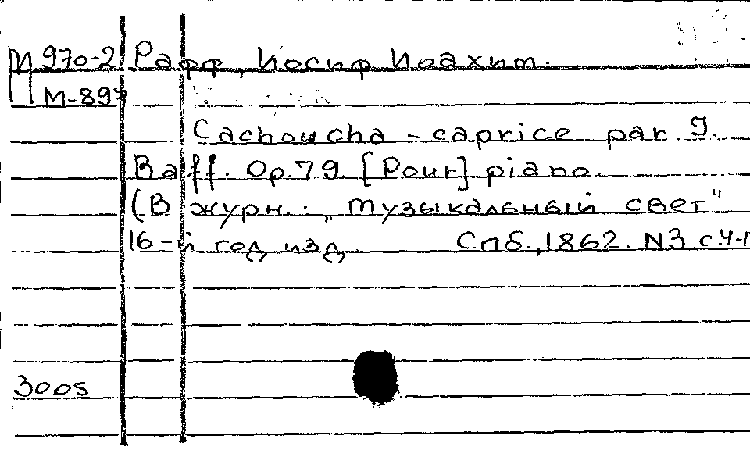 М 970-2 Рафф, Иосиф Иоахим.
П М-897
Cachoucha - caprice par J.
Raff. Op.79. [Pour] piano.
(В журн.: „Музыкальный свет"
16-й год изд. Спб., 1862. N3 с.4-
300s